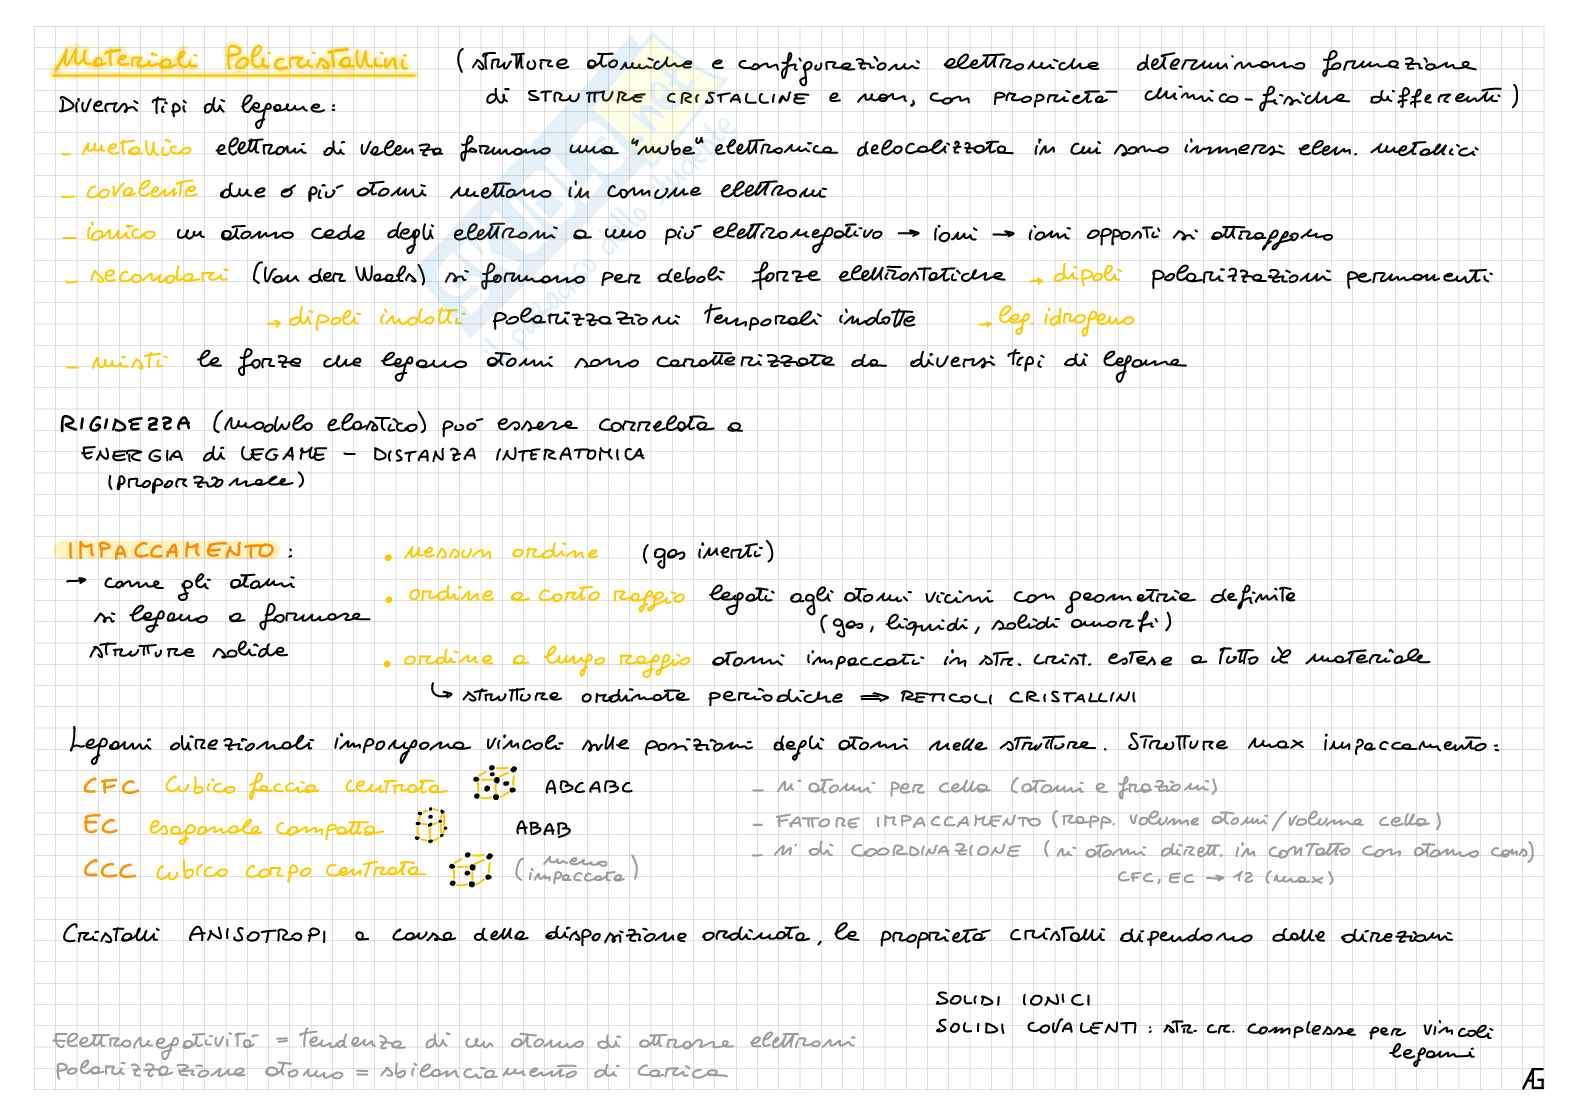 Materiali Policristallini (strutture atomiche e configurazioni elettroniche determinano formazione
di STRUTTURE CRISTALLINE e non, con proprietà chimico-fisiche differenti)
Diversi tipi di legame:
- metallico elettroni di valenza formano una "nube" elettronica delocalizzata in cui sono immersi elem. metallici
- covalente due o più atomi mettano in comune elettroni
- ionico un atomo cede degli elettroni a uno più elettronegativo → ioni → ioni opposti si attraggono
- secondari (Van der Waals) si formano per deboli forze elettrostatiche → dipoli polarizzazioni permanenti
→ dipoli indotti polarizzazioni temporali indotte → leg. idrogeno
- misti le forze che legano atomi sono caratterizzate da diversi tipi di legame
RIGIDEZZA (modulo elastico) può essere correlata a
ENERGIA di LEGAME - DISTANZA INTERATOMICA
(proporzionale)
IMPACCAMENTO: • nessun ordine (gas inerti)
→ come gli atomi
si legano a formare
strutture solide
• ordine a corto raggio legati agli atomi vicini con geometria definite
(gas, liquidi, solidi amorfi)
• ordine a lungo raggio atomi impaccati in str. crist. estese a tutto il materiale
↳ strutture ordinate periodiche ⇒ RETICOLI CRISTALLINI
Legami direzionali impongono vincoli sulle posizioni degli atomi nelle strutture. Strutture max impaccamento:
CFC cubico faccia centrata ABCABC
EC esagonale compatta ABAB
CCC cubico corpo centrata (meno impaccata)
- n° atomi per cella (atomi e frazioni)
- FATTORE IMPACCAMENTO (rapp. volume atomi/volume cella)
- n° di COORDINAZIONE (n° atomi dirett. in contatto con atomo cons)
CFC, EC → 12 (max)
Cristalli ANISOTROPI a causa della disposizione ordinata, le proprietà cristalli dipendono dalle direzioni
SOLIDI IONICI
SOLIDI COVALENTI: str. cr. complesse per vincoli
legami
Elettronegatività = tendenza di un atomo di attrarre elettroni
polarizzazione atomo = sbilanciamento di carica
AG